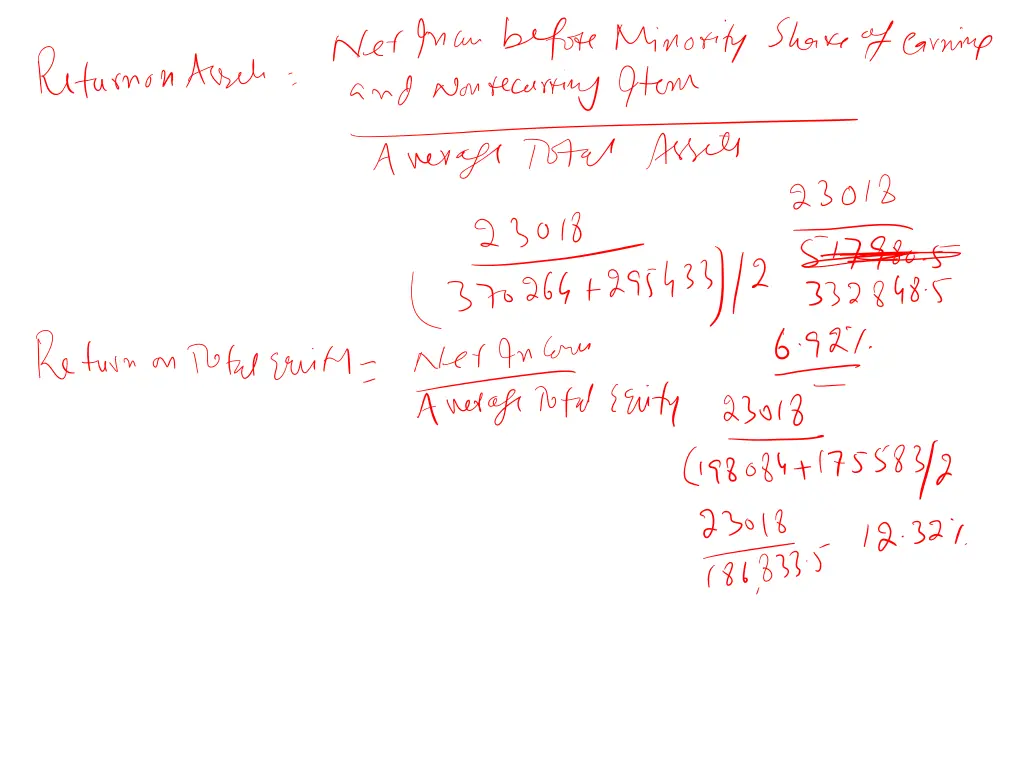 Return on Assets = NetIncom before Minority Share of earning
and Nonrecurring Item
Average Total Assets
23018
(370264+295433)/2
23018
517980.5
332848.5
6.92%
Return on Total Equity = Net Income
Average Total Equity
23018
(198084+175583/2
23018
186,833.5
12.32%